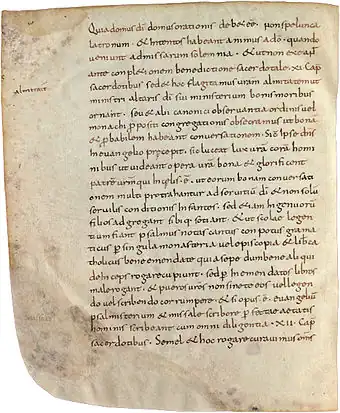 Quia domus dī domus orationis debet eē. non spelunca
latronum. & intentos habeant animos ad d̄. quando
veniunt ad missarum solemnia. & ut non exeant
ante conpletionem benedictionis sacerdotalis. XI. Cap
sacerdotibus. sed & hoc flagitamus uram almitatem ut
almitatē
ministri altaris dī suū ministerium bonis moribus
ornent. seu & alii canonici observantiae ordines vel
monachi p positi congregationis obsecramus ut bonā
& p babilem habeant conversationem. Sic ipse dns
in evangelio precepit. sic luceat lux ura corā homi
nibus ut videant opera ura bona. & glorificent
patrē urm qui in celis. ē. ut eorum bonam conversati
onem multi protrahantur ad servitiū dī & non solū
servilis conditionis infantes. sed & iam ingenuorū
filios adgregent sibiq. sotient. & ut scolae legen
tium fiant psalmus notas cantus conpotus grama
ticus p singula monasteria vel episcopia & lib ca
tholicus bene emendate quia sepe dum bene aliqui
dm inceps rogare cupiunt. sed p inemendatos libros
male rogant. & pueros uros non sinete eos vel legen
do vel scribendo corrumpere. & si opus. ē. evangeliū
psalmisterium & missale scribere pfectae aetatis
homines scribeant cum omni diligentia. XII. Cap
sacerdotibus. Simul & hoc rogare curavimus omīs